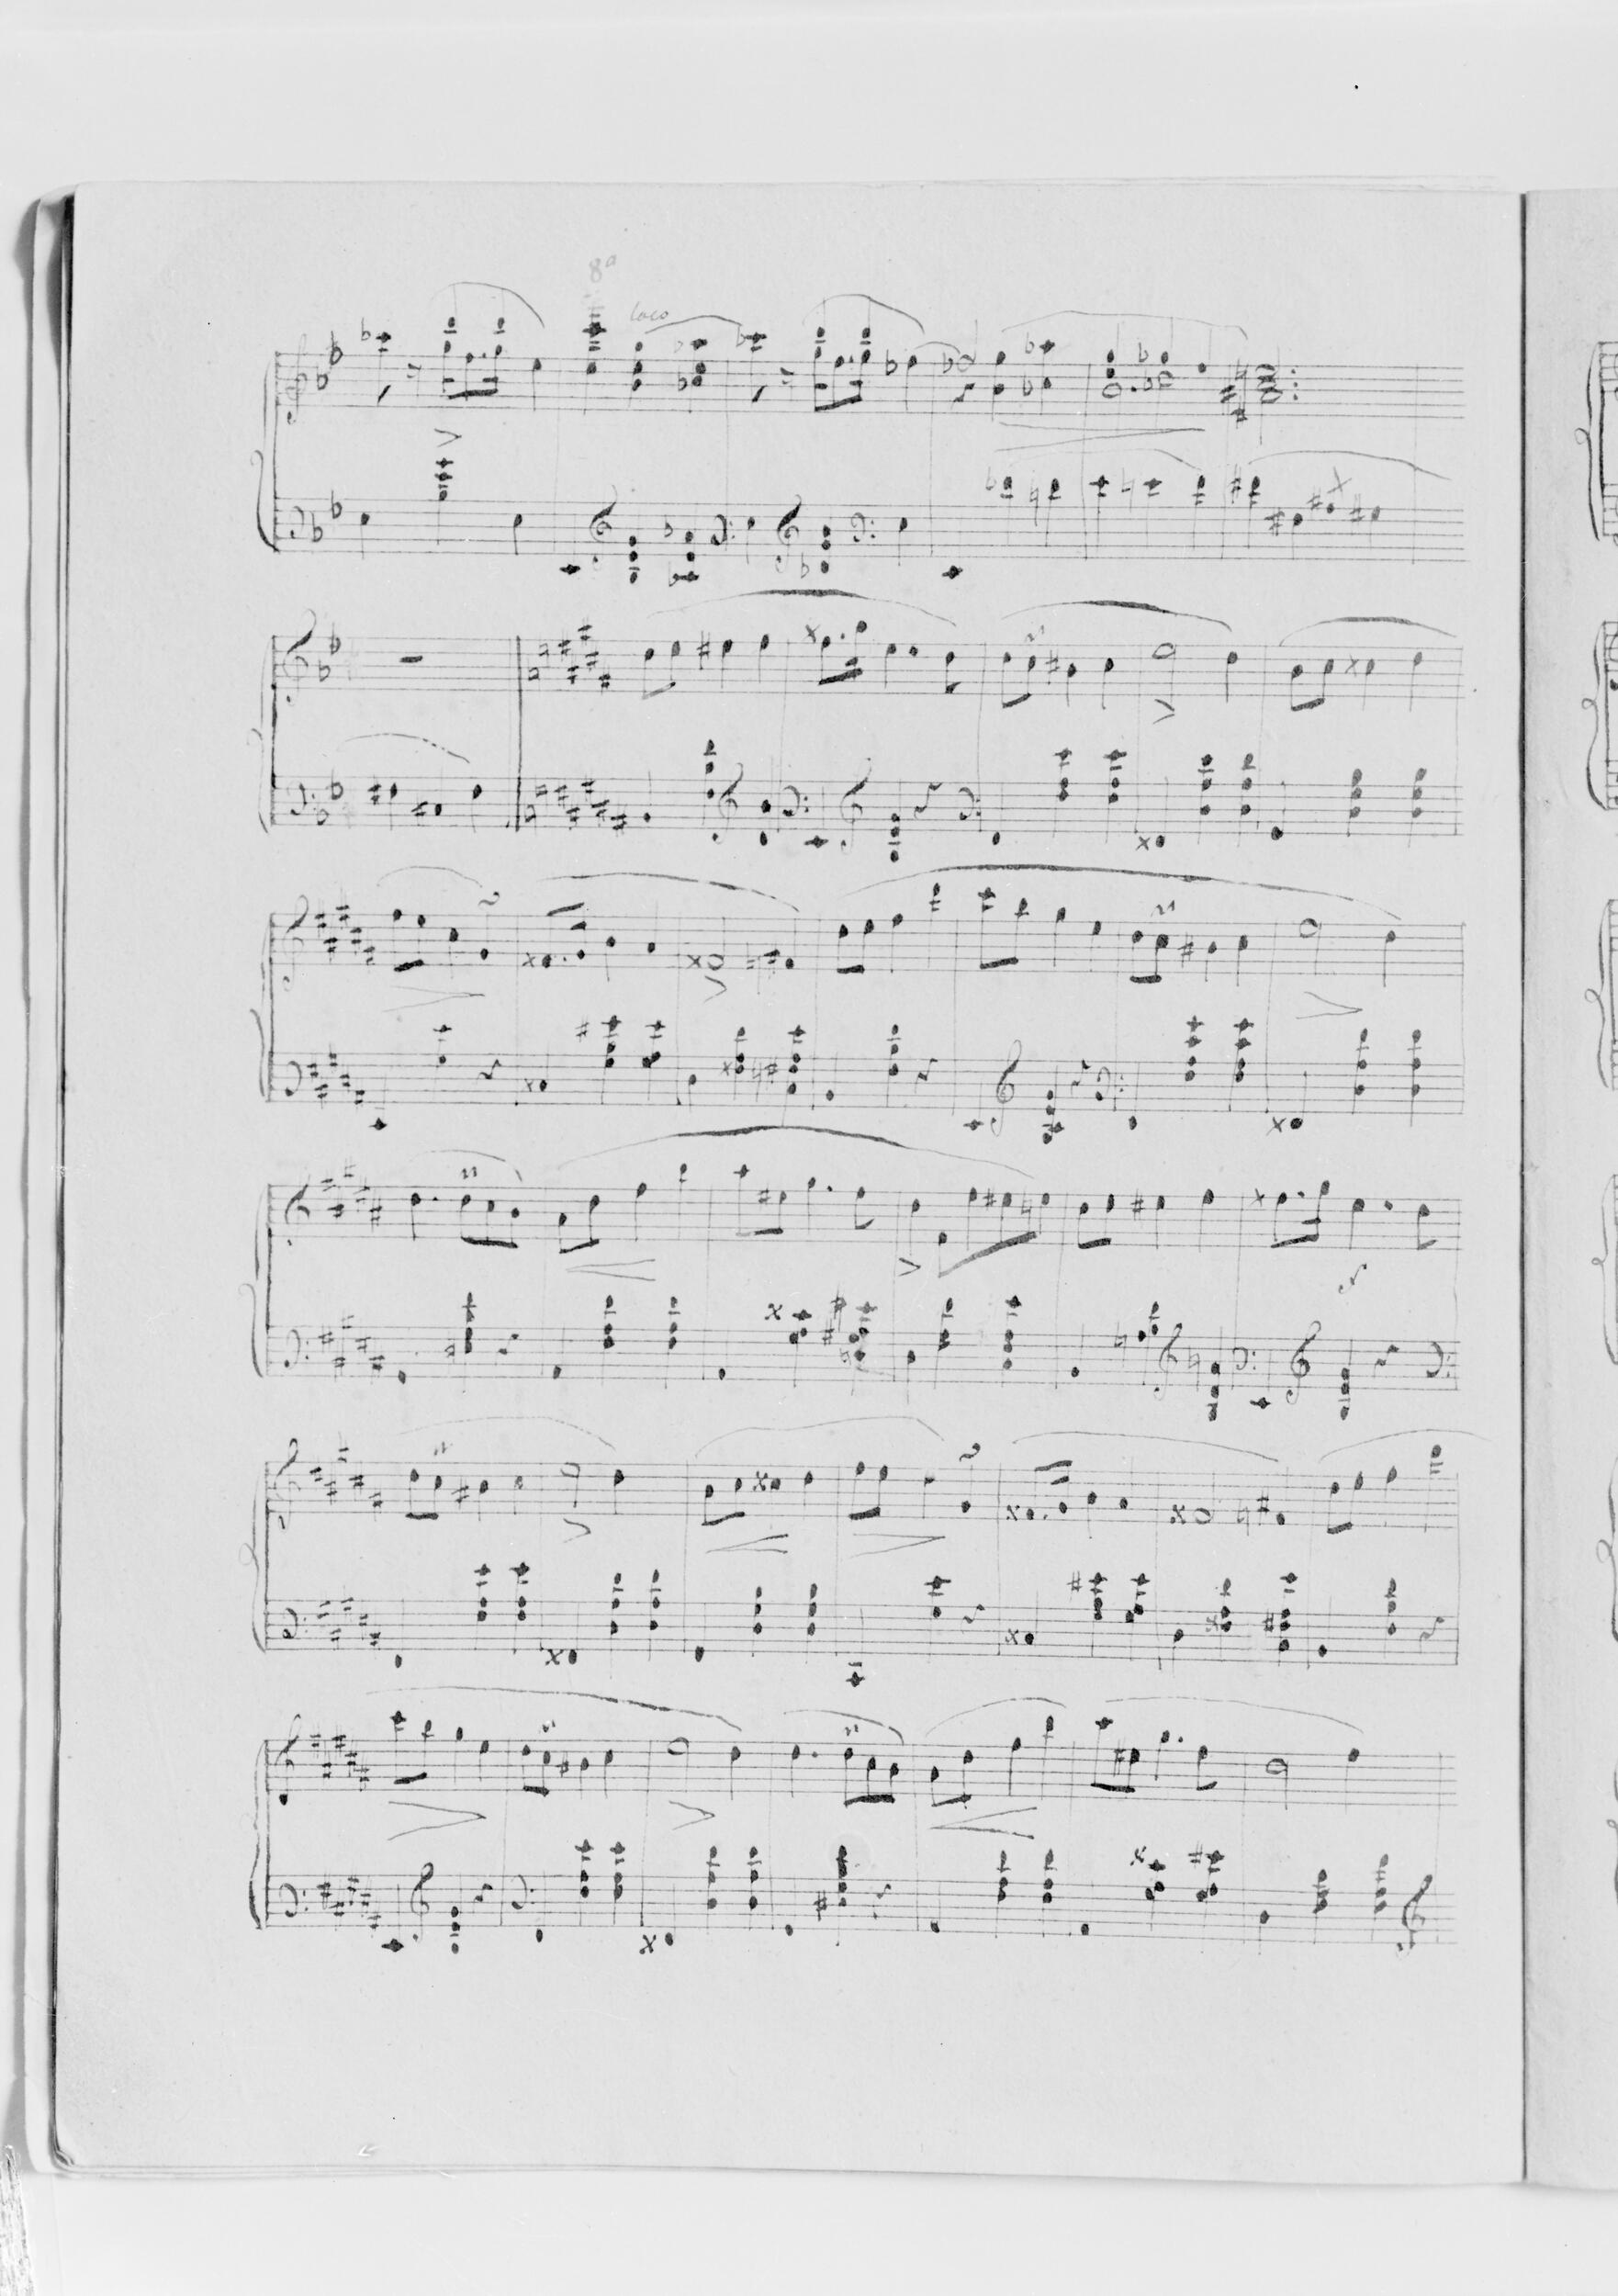 8ª
loco